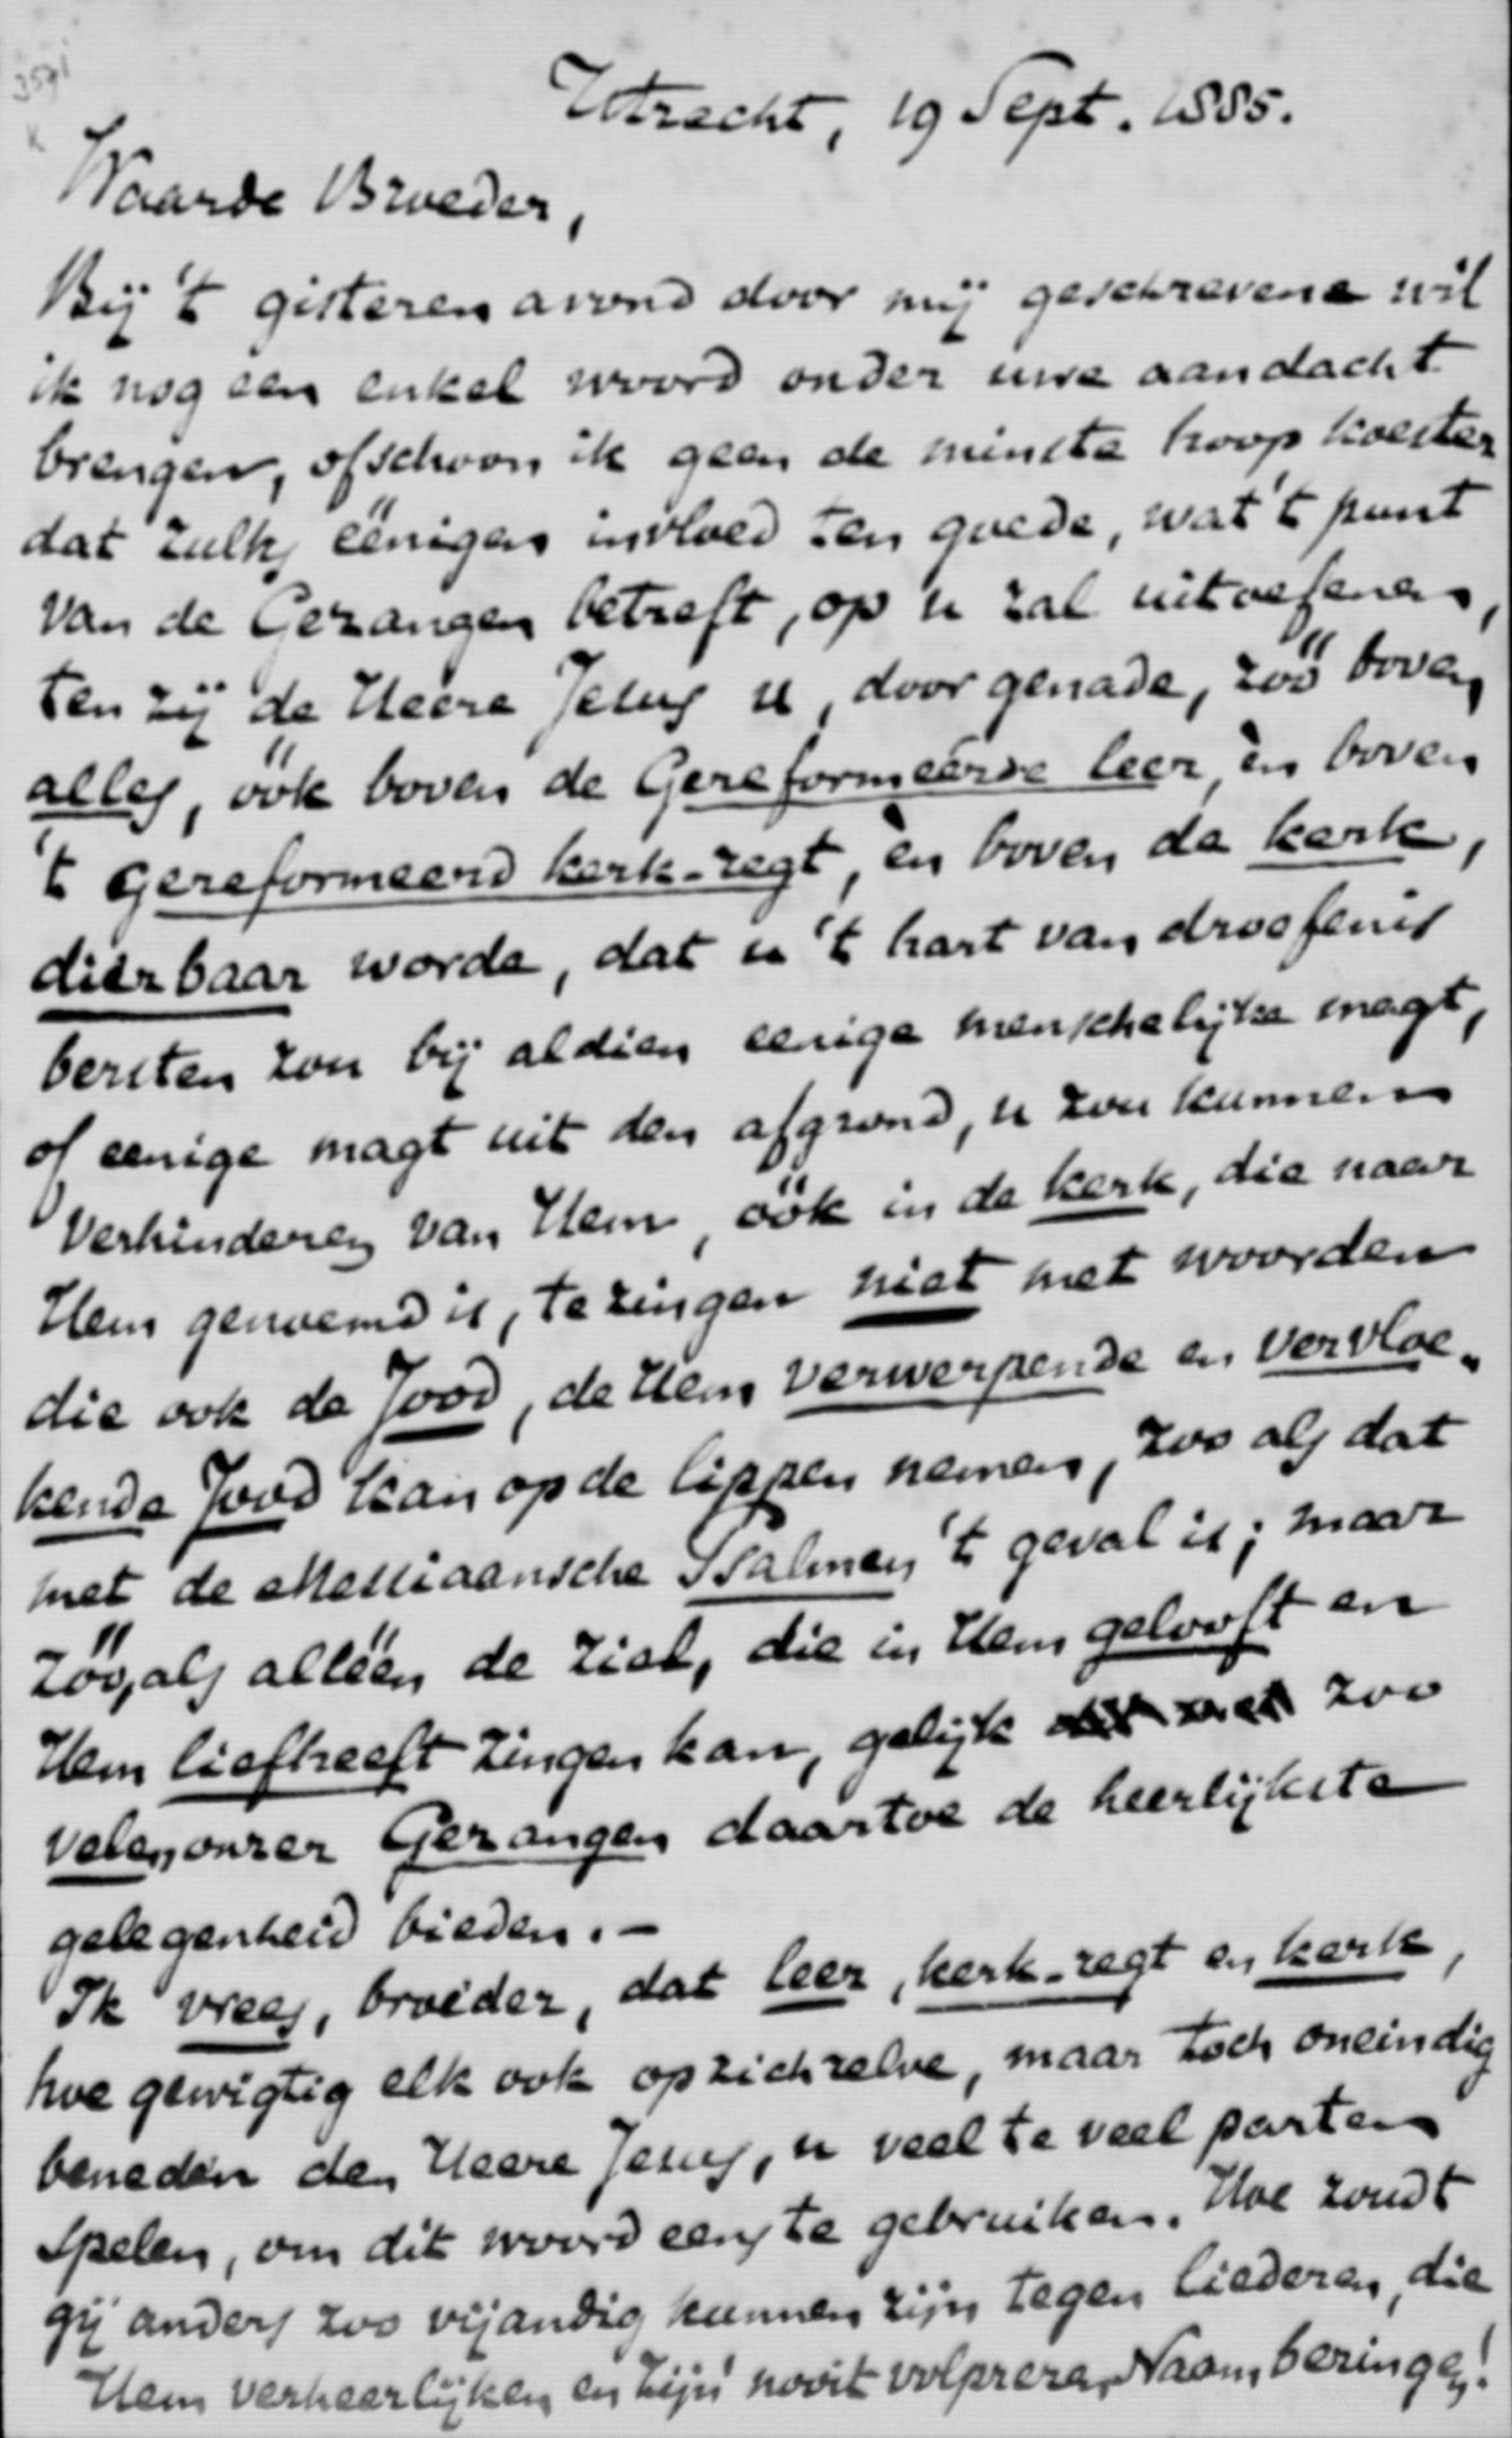 3591
Utrecht, 19 Sept. 1885.
Waarde Broeder,
Bij 't gisteren avond door mij geschrevene wil
ik nog een enkel woord onder uwe aandacht
brengen, ofschoon ik geen de minste hoop koester
dat zulks eënigen invloed ten goede, wat 't punt
van de Gezangen betreft, op u zal uitoefenen,
ten zij de Heere Jesus u, door genade, zöö boven
alles, öök boven de Gereformeerde leer, èn boven
't gereformeerd kerk-regt, èn boven de kerk,
dierbaar worde, dat u 't hart van droefenis
bersten zou bij aldien eenige menschelijke magt,
of eenige magt uit den afgrond, u zou kunnen
verhinderen van Hem, öök in de kerk, die naar
Hem genoemd is, te zingen niet met woorden
die ook de Jood, de Hem verwerpende en vervloe-
kende Jood kan op de lippen nemen, zoo als dat
met de Messiaansche Psalmen 't geval is; maar
zöö, als allëën de ziel, die in Hem gelooft en
Hem liefheeft zingen kan, gelijk zoo
velen onzer Gezangen daartoe de heerlijkste
gelegenheid bieden. -
Ik vrees, broeder, dat leer, kerk-regt en kerk,
hoe gewigtig elk ook op zich zelve, maar toch oneindig
beneden den Heere Jesus, u veel te veel parten
spelen, om dit woord eens te gebruiken. Hoe zoudt
gij anders zoo vijandig kunnen zijn tegen liederen, die
Hem verheerlijken en Zijn' nooit volprezen Naam bezingen!